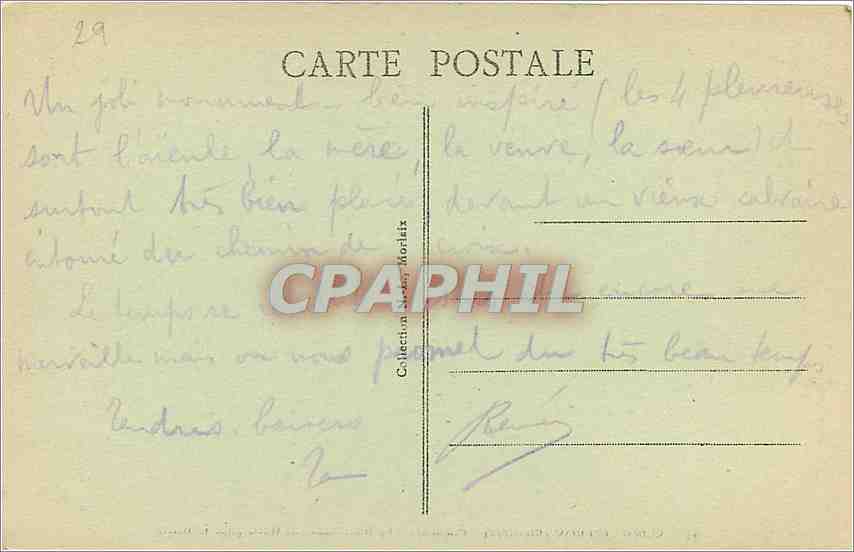 29
CARTE POSTALE
Un joli monument bien inspiré (les 4 pleureuses
sont l'aieule, la mère, la veuve, la sœur) et
surtout très bien placé devant un vieux calvaire
entouré du chemin de croix.
Le temps se encore une
merveille mais on nous promet du très beau temps
Tendres baisers
CPAPHIL
Collection N. D., Morlaix